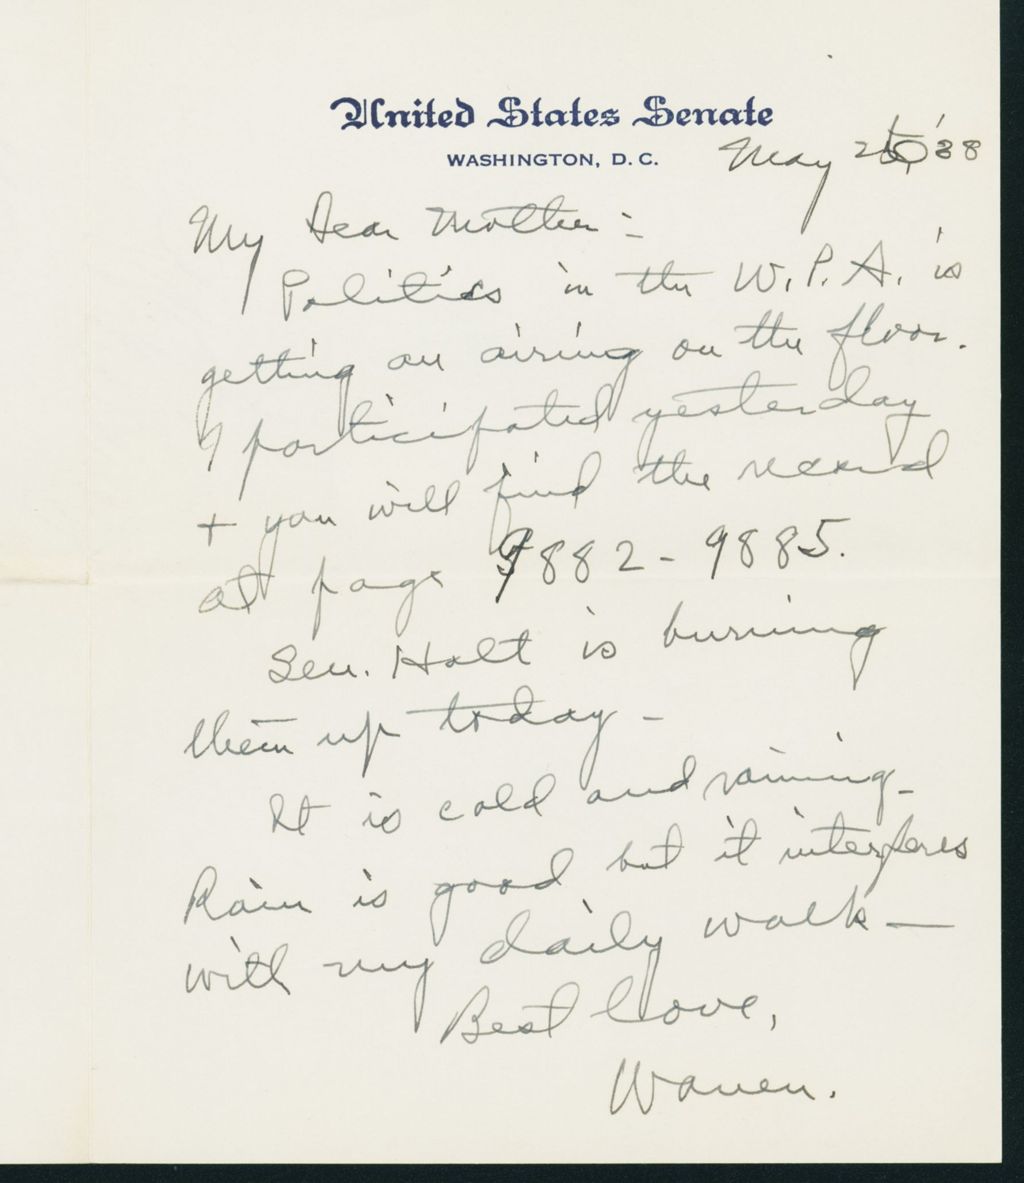 United States Senate
WASHINGTON, D. C.
May '38
My Dear Mother:-
Politics in the W.P.A. is
getting an airing on the floor.
I participated yesterday
+ you will find the record
at page 9882-9885.
Sen. Holt is burning
them up today-
It is cold and raining-
Rain is good but it interferes
with my daily walk-
Best Love,
Warren.